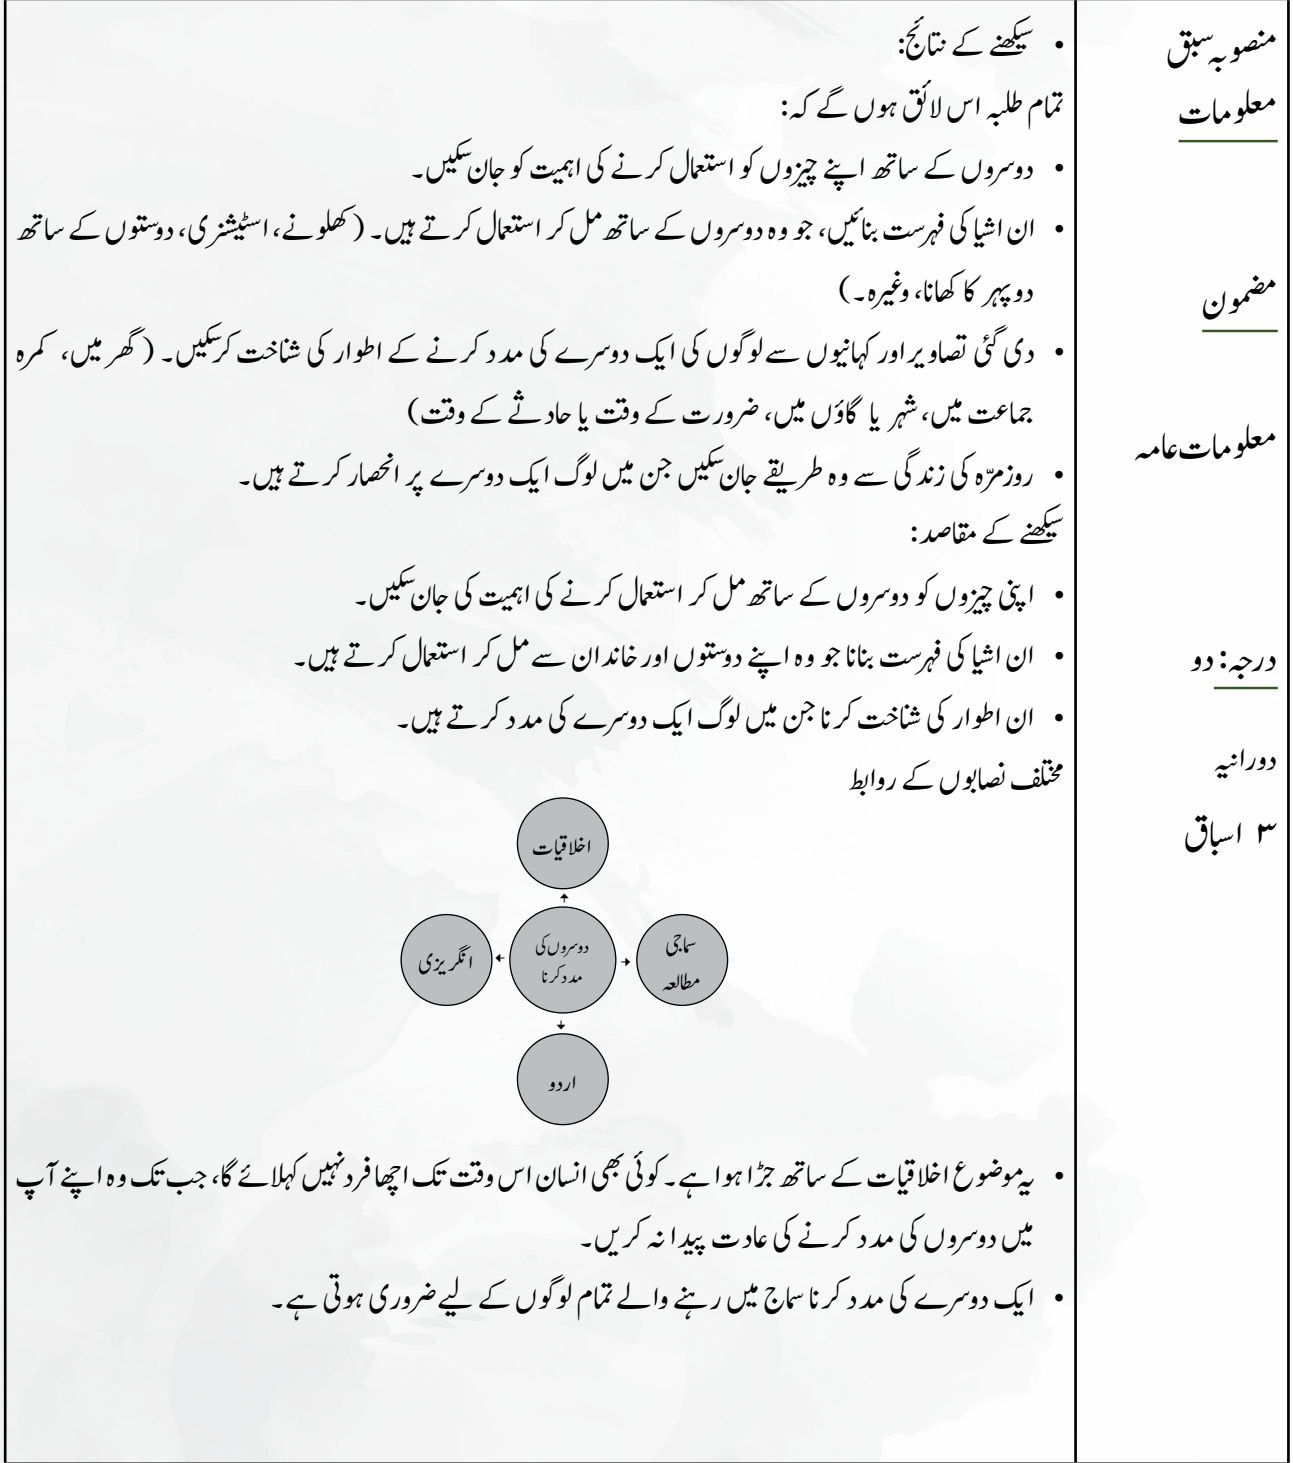 منصوبہ سبق
معلومات
مضمون
معلومات عامہ
درجہ: دو
دورانیہ
۳ اسباق
• سیکھنے کے نتائج:
تمام طلبہ اس لائق ہوں گے کہ:
• دوسروں کے ساتھ اپنے چیزوں کو استعمال کرنے کی اہمیت کو جان سکیں۔
• ان اشیا کی فہرست بنائیں، جو وہ دوسروں کے ساتھ مل کر استعمال کرتے ہیں۔ (کھلونے، اسٹیشنری، دوستوں کے ساتھ
دوپہر کا کھانا، وغیرہ۔)
• دی گئی تصاویر اور کہانیوں سے لوگوں کی ایک دوسرے کی مدد کرنے کے اطوار کی شناخت کرسکیں۔ (گھر میں، کمرہ
جماعت میں، شہر یا گاؤں میں، ضرورت کے وقت یا حادثے کے وقت)
• روزمرّہ کی زندگی سے وہ طریقے جان سکیں جن میں لوگ ایک دوسرے پر انحصار کرتے ہیں۔
سیکھنے کے مقاصد:
• اپنی چیزوں کو دوسروں کے ساتھ مل کر استعمال کرنے کی اہمیت کی جان سکیں۔
• ان اشیا کی فہرست بنانا جو وہ اپنے دوستوں اور خاندان سے مل کر استعمال کرتے ہیں۔
• ان اطوار کی شناخت کرنا جن میں لوگ ایک دوسرے کی مدد کرتے ہیں۔
مختلف نصابوں کے روابط
اخلاقیات
سماجی
مطالعہ
دوسروں کی
مدد کرنا
انگریزی
اردو
• یہ موضوع اخلاقیات کے ساتھ جڑا ہوا ہے۔ کوئی بھی انسان اس وقت تک اچھا فرد نہیں کہلائے گا، جب تک وہ اپنے آپ
میں دوسروں کی مدد کرنے کی عادت پیدا نہ کریں۔
• ایک دوسرے کی مدد کرنا سماج میں رہنے والے تمام لوگوں کے لیے ضروری ہوتی ہے۔